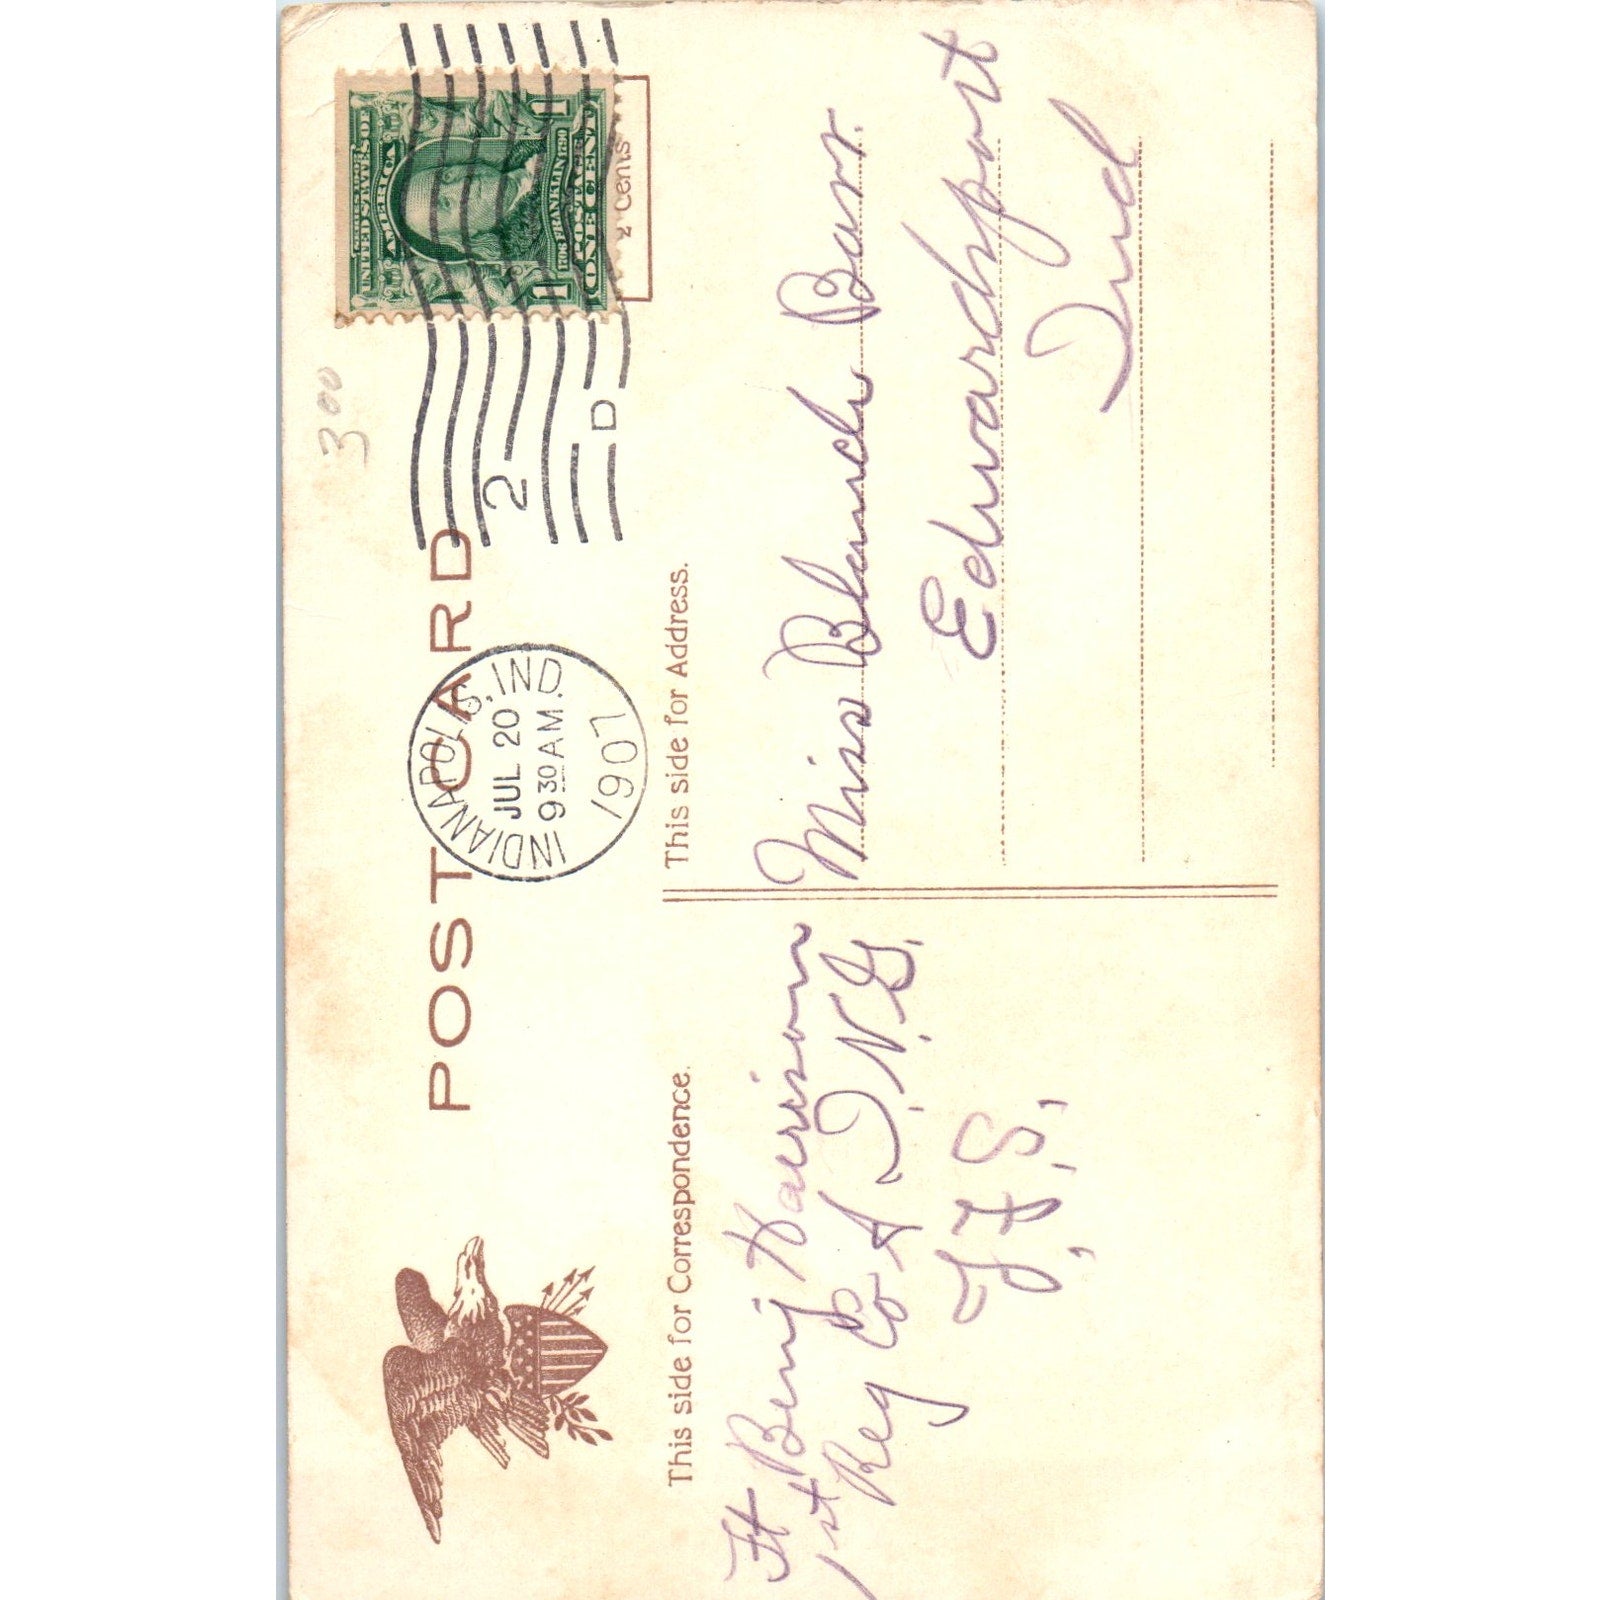 300
POST CARD
INDIANAPOLIS, IND.
JUL 20
9 30 AM.
1907
2
D
SERIES 1902
UNITED STATES OF
AMERICA
FRANKLIN 1790
POSTAGE
ONE CENT
2 Cents
This side for Correspondence.
This side for Address.
Ft Benj Harrison
1st Reg Co A I.N.G.
J.F.S.
Miss Blanch Barr.
Edwardsport
Ind